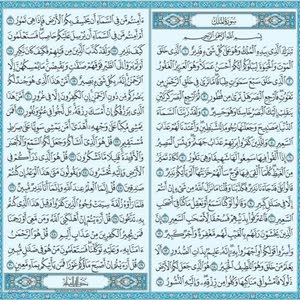 سُورَةُ الْمُلْكِ
بِسْمِ اللَّهِ الرَّحْمَٰنِ الرَّحِيمِ
تَبَارَكَ الَّذِي بِيَدِهِ الْمُلْكُ وَهُوَ عَلَىٰ كُلِّ شَيْءٍ قَدِيرٌ ١ الَّذِي خَلَقَ
الْمَوْتَ وَالْحَيَاةَ لِيَبْلُوَكُمْ أَيُّكُمْ أَحْسَنُ عَمَلًا وَهُوَ الْعَزِيزُ الْغَفُورُ ٢
الَّذِي خَلَقَ سَبْعَ سَمَاوَاتٍ طِبَاقًا مَّا تَرَىٰ فِي خَلْقِ الرَّحْمَٰنِ مِن
تَفَاوُتٍ فَارْجِعِ الْبَصَرَ هَلْ تَرَىٰ مِن فُطُورٍ ٣ ثُمَّ ارْجِعِ الْبَصَرَ كَرَّتَيْنِ
يَنقَلِبْ إِلَيْكَ الْبَصَرُ خَاسِئًا وَهُوَ حَسِيرٌ ٤ وَلَقَدْ زَيَّنَّا السَّمَاءَ
الدُّنْيَا بِمَصَابِيحَ وَجَعَلْنَاهَا رُجُومًا لِّلشَّيَاطِينِ وَأَعْتَدْنَا لَهُمْ عَذَابَ
السَّعِيرِ ٥ وَلِلَّذِينَ كَفَرُوا بِرَبِّهِمْ عَذَابُ جَهَنَّمَ وَبِئْسَ الْمَصِيرُ ٦
إِذَا أُلْقُوا فِيهَا سَمِعُوا لَهَا شَهِيقًا وَهِيَ تَفُورُ ٧ تَكَادُ تَمَيَّزُ
مِنَ الْغَيْظِ كُلَّمَا أُلْقِيَ فِيهَا فَوْجٌ سَأَلَهُمْ خَزَنَتُهَا أَلَمْ يَأْتِكُمْ نَذِيرٌ ٨
قَالُوا بَلَىٰ قَدْ جَاءَنَا نَذِيرٌ فَكَذَّبْنَا وَقُلْنَا مَا نَزَّلَ اللَّهُ مِن شَيْءٍ إِنْ أَنتُمْ
إِلَّا فِي ضَلَالٍ كَبِيرٍ ٩ وَقَالُوا لَوْ كُنَّا نَسْمَعُ أَوْ نَعْقِلُ مَا كُنَّا فِي أَصْحَابِ
السَّعِيرِ ١٠ فَاعْتَرَفُوا بِذَنبِهِمْ فَسُحْقًا لِّأَصْحَابِ السَّعِيرِ ١١
إِنَّ الَّذِينَ يَخْشَوْنَ رَبَّهُم بِالْغَيْبِ لَهُم مَّغْفِرَةٌ وَأَجْرٌ كَبِيرٌ ١٢
وَأَسِرُّوا قَوْلَكُمْ أَوِ اجْهَرُوا بِهِ إِنَّهُ عَلِيمٌ بِذَاتِ الصُّدُورِ ١٣
أَلَا يَعْلَمُ مَنْ خَلَقَ وَهُوَ اللَّطِيفُ الْخَبِيرُ ١٤ هُوَ الَّذِي جَعَلَ لَكُمُ الْأَرْضَ
ذَلُولًا فَامْشُوا فِي مَنَاكِبِهَا وَكُلُوا مِن رِّزْقِهِ وَإِلَيْهِ النُّشُورُ ١٥
ءَأَمِنتُم مَّن فِي السَّمَاءِ أَن يَخْسِفَ بِكُمُ الْأَرْضَ فَإِذَا هِيَ تَمُورُ ١٦
أَمْ أَمِنتُم مَّن فِي السَّمَاءِ أَن يُرْسِلَ عَلَيْكُمْ حَاصِبًا فَسَتَعْلَمُونَ
كَيْفَ نَذِيرِ ١٧ وَلَقَدْ كَذَّبَ الَّذِينَ مِن قَبْلِهِمْ فَكَيْفَ كَانَ
نَكِيرِ ١٨ أَوَلَمْ يَرَوْا إِلَى الطَّيْرِ فَوْقَهُمْ صَافَّاتٍ وَيَقْبِضْنَ مَا يُمْسِكُهُنَّ
إِلَّا الرَّحْمَٰنُ إِنَّهُ بِكُلِّ شَيْءٍ بَصِيرٌ ١٩ أَمَّنْ هَٰذَا الَّذِي هُوَ جُندٌ لَّكُمْ
يَنصُرُكُم مِّن دُونِ الرَّحْمَٰنِ إِنِ الْكَافِرُونَ إِلَّا فِي غُرُورٍ ٢٠ أَمَّنْ
هَٰذَا الَّذِي يَرْزُقُكُمْ إِنْ أَمْسَكَ رِزْقَهُ بَل لَّجُّوا فِي عُتُوٍّ وَنُفُورٍ ٢١
أَفَمَن يَمْشِي مُكِبًّا عَلَىٰ وَجْهِهِ أَهْدَىٰ أَمَّن يَمْشِي سَوِيًّا عَلَىٰ صِرَاطٍ
مُّسْتَقِيمٍ ٢٢ قُلْ هُوَ الَّذِي أَنشَأَكُمْ وَجَعَلَ لَكُمُ السَّمْعَ وَالْأَبْصَارَ
وَالْأَفْئِدَةَ قَلِيلًا مَّا تَشْكُرُونَ ٢٣ قُلْ هُوَ الَّذِي ذَرَأَكُمْ فِي
الْأَرْضِ وَإِلَيْهِ تُحْشَرُونَ ٢٤ وَيَقُولُونَ مَتَىٰ هَٰذَا الْوَعْدُ إِن كُنتُمْ
صَادِقِينَ ٢٥ قُلْ إِنَّمَا الْعِلْمُ عِندَ اللَّهِ وَإِنَّمَا أَنَا نَذِيرٌ مُّبِينٌ ٢٦
فَلَمَّا رَأَوْهُ زُلْفَةً سِيئَتْ وُجُوهُ الَّذِينَ كَفَرُوا وَقِيلَ هَٰذَا الَّذِي
كُنتُم بِهِ تَدَّعُونَ ٢٧ قُلْ أَرَءَيْتُمْ إِنْ أَهْلَكَنِيَ اللَّهُ وَمَن مَّعِيَ أَوْ رَحِمَنَا
فَمَن يُجِيرُ الْكَافِرِينَ مِنْ عَذَابٍ أَلِيمٍ ٢٨ قُلْ هُوَ الرَّحْمَٰنُ
ءَامَنَّا بِهِ وَعَلَيْهِ تَوَكَّلْنَا فَسَتَعْلَمُونَ مَنْ هُوَ فِي ضَلَالٍ مُّبِينٍ ٢٩
قُلْ أَرَءَيْتُمْ إِنْ أَصْبَحَ مَاؤُكُمْ غَوْرًا فَمَن يَأْتِيكُم بِمَاءٍ مَّعِينٍ ٣٠